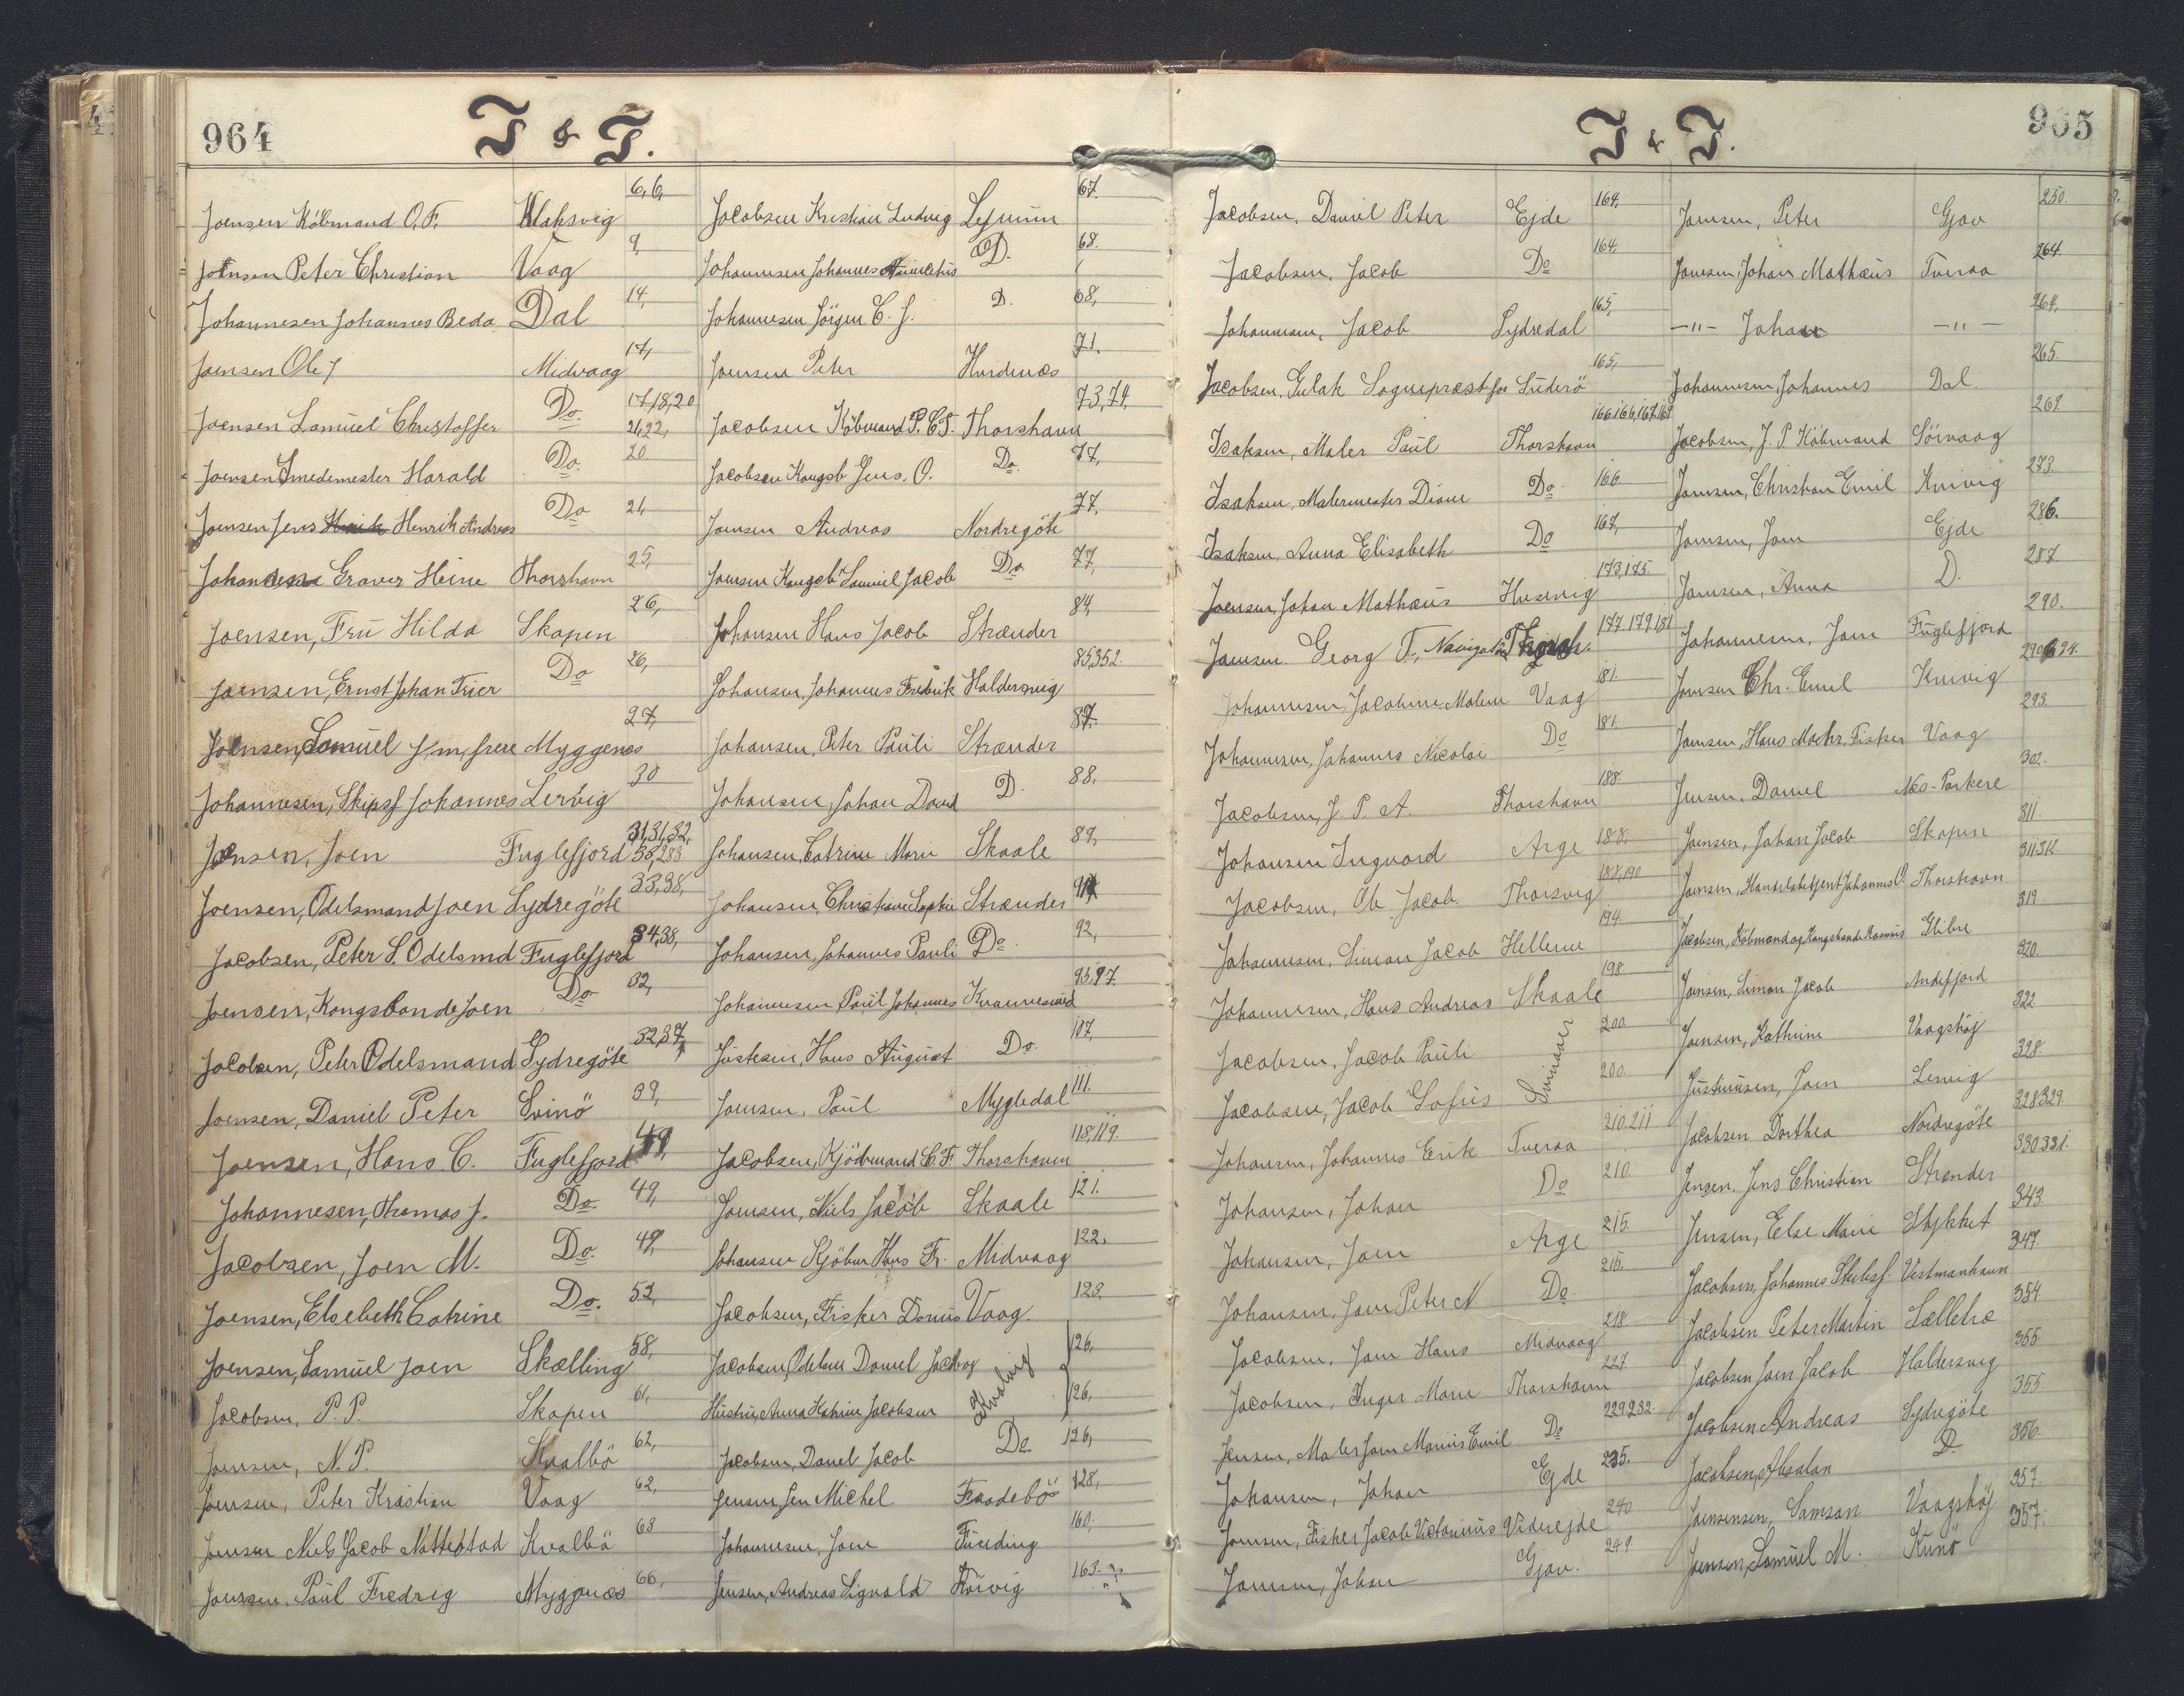 964
J & J.
Joensen Köbmand O.F. Klaksvig 6,6,
Joensen Peter Christian Vaag 9,
Johannesen Johannes Beda Dal 14,
Joensen Ole J Midvaag 17,
Joensen Samuel Christoffer Do 17,18,20 21,22,
Joensen Smedemester Harald Do. 20
Joensen Jens Henrik Andreas Do 21
Johansen Graver Heine Thorshavn 25,
Joensen, Frü Hilda Skapen 26,
Joensen, Ernst Johan Trier Do 26,
Joensen, Samüel J, m, frere Myggenæs 27,
Johannesen, Skipsf Johannes Lervig 30
Joensen, Joen Fuglefjord 31,31,32, 58,283
Joensen, Odelsmand Joen Sydregöte 33,38,
Jacobsen, Peter S. Odelsmd Fuglefjord 34,38,
Joensen, Kongsbonde Joen Do 32,
Jacobsen, Peter Odelsmand Sydregöte 32,37,
Joensen, Daniel Peter Svinö 39,
Joensen, Hans C. Fuglefjord 49,
Johannesen, Thomas J. Do. 49,
Jacobsen, Joen M. Do. 49,
Joensen, Elsebeth Catrine Do. 53,
Joensen, Samuel Joen Skælling 58,
Jacobsen, P.P. Skapen 61,
Joensen, N.P. Kvalbö 62,
Joensen, Peter Kristian Vaag 62,
Joensen Niels Jacob Nattestad Kvalbö 63
Joensen, Paül Fredrig Myggenæs 66,
Jacobsen Kristian Ludvig Lejnum 67.
Johannesen Johannes D. 68.
Johannesen Jörgen C. J. D. 68,
Joensen Peter Hvidenæs 71.
Jacobsen Köbmand P.C.J. Thorshavn 73,74,
Jacobsen Kongsb Jens. O. Do. 77,
Joensen Andreas Nordregöte 77,
Joensen Kongsb Samuel Jacob Do 77,
Johansen Hans Jacob Strænder 84,
Johansen, Johannes Fredrik Haldersvig 85,352.
Johansen, Peter Pauli Strænder 87.
Johansen, Johan David D. 88.
Johansen, Catrine Marie Skaale 89,
Johansen, Christiane Sophie Strænder 91
Johansen, Johannes Pauli Do 92,
Johannesen Paül Johannes Kvannesund 95,97.
Jüstesen, Hans Aügust Do. 107,
Joensen, Paül Mygledal 111.
Jacobsen, Kjöbmand C.F. Thorshavn 118,119.
Joensen, Niels Jacob Skaale 121.
Johansen Kjöbm Hans Fr. Midvaag 122.
Jacobsen, Fisker Vaag. 123,
Jacobsen, Odelsm Daniel Jacob og 126,
Hüstrü, Anna Katrine Jacobsen Hvalvig 126,
Jacobsen, Daniel Jacob Do 126,
Jensen, Jen Michel Frodebö 128,
Johannesen, Joen Fünding 160,
Jensen, Andreas Signald 163.
965
J & J.
Jacobsen, Daniel Peter Ejde 164,
Jacobsen, Jacob Do 164
Johannesen, Jacob Sydredal 165,
Jacobsen, Sognepræst for Süderö 165,
Isaksen, Maler Paül Thorshavn 166,166,167,169
Isaksen, Malermester Do 166
Isaksen, Anna Elisabeth Do 167,
Joensen, Johan Mathæus Husevig 173,175.
Joensen. Georg F., 177.179.181
Johannesen, Jacobine Malene Vaag 181.
Johannesen, Johannes Nicolai Do 181.
Jacobsen, J. P. A. Thorshavn 188.
Johansen Ingvard Arge 188,
Jacobsen, Ole Jacob Thorsvig 188,190
Johannesen, Simon Jacob Hellerne 194.
Johannesen, Hans Andreas Skaale 198
Jacobsen, Jacob Pauli Svinaar 200
Jacobsen, Jacob Sofus 200.
Johansen, Johannes Erik Tveraa 210,211
Johansen, Johan Do 210.
Johansen, Joen Arge 215.
Johansen, Joen Peter N Do. 215.
Jacobsen, Joen Hans Midvaag 218
Jacobsen, Inger Marie Thorshavn 227.
Jensen, Maler Joen Marius Emil Do 229.232.
Johansen, Johan Ejde 235.
Joensen, Fisker Jacob Victorinus Viderejde 240
Joensen, Johan Gjov. 249.
Joensen, Peter Gjov 250.
Joensen, Johan Mathæus Tveraa 264.
—"— Johan —"— 264,
Johannesen, Johannes Dal 265.
Jacobsen, J. P Köbmand Sörvaag 269
Joensen, Christian Emil Kvivig 273.
Joensen, Joen Ejde 286.
Joensen, Anna D. 287.
Johannesen, Joen Fuglefjord 290.
Joensen Chr. Emil Kvivig 290
Joensen, Hans Fisker Vaag 293
Jensen, Daniel Næs-Porkere 302.
Joensen, Johan Jacob Skapen 311.
Joensen, Handelsbetjent Johannes O. Thorshavn
Jacobsen, Köbmand og Kongsbonde Rasmus Glibre 319.
Joensen, Simon Jacob Andefjord 320.
Joensen, Kathrine Vaagsböj 322
Justinusen, Joen Lervig 328
Jacobsen Dorthea Nordregöte 328329.
Jensen, Jens Christian Strænder 330331.
Jensen, Else Marie Stykket 343
Jacobsen, Johannes Skibsf. Vestmanhavn 347.
Jacobsen Peter Martin Sælletræ 354
Jacobsen Joen Jacob Haldersvig 355
Jacobsen Andreas Sydregöte 355
Jacobsen, Absalon D. 356
Joensensen, Samson Vaagsböj 357.
Joensen, Samuel M. Kunö 357.